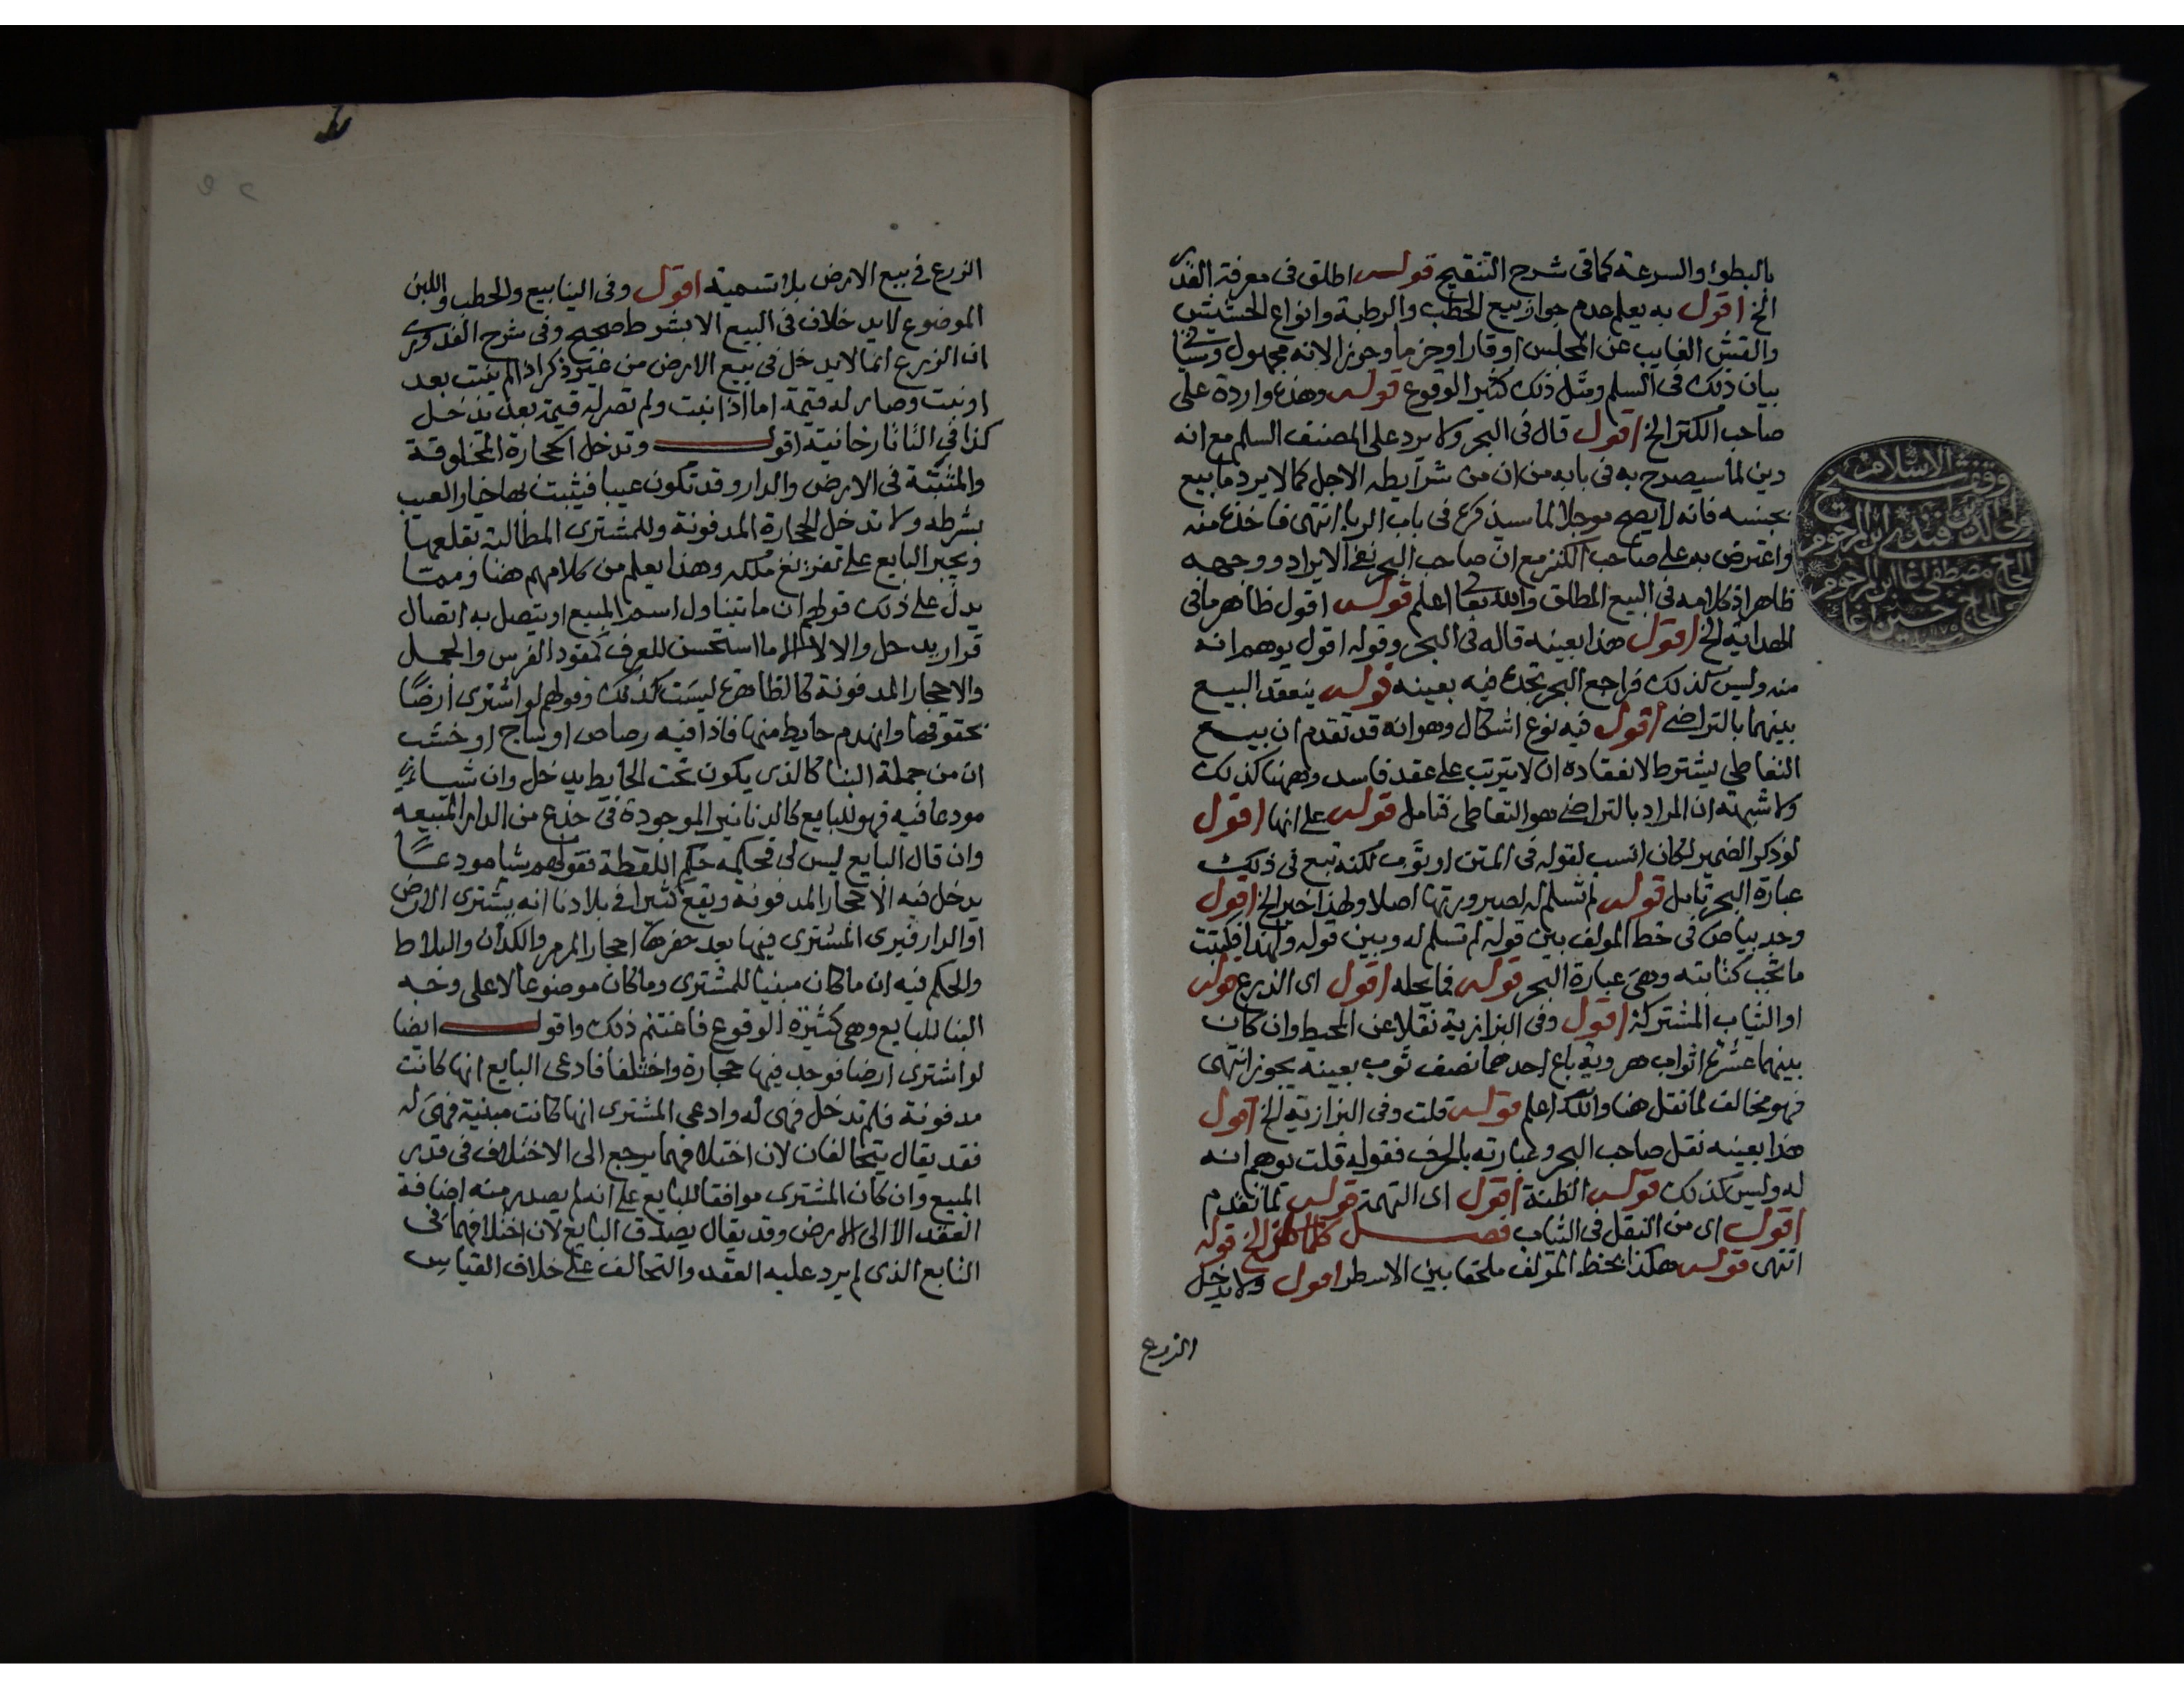 بالبطؤ والسرعة كما في شرح التنقيح قوله اطلق في معرفة القدر
الخ اقول به يعلم عدم جواز بيع الحطب والرطبة وانواع الحشيش
والقش الغايب عن المجلس اوقارا وحزما وجوزا لانه مجهول وسياتي
بيان ذلك في السلم ومثل ذلك كثير الوقوع قوله وهذه واردة على
صاحب الكنز الخ اقول قال في البحر ولا يرد على المصنف السلم مع انه
دين لما سيصرح به في بابه من ان من شرايطه الاجل كما لا يرد ما بيع
بجنسه فانه لا يصح موجلا لما سيذكره في باب الربا انتهى فاخذه منه
واعترض به على صاحب الكنز مع ان صاحب البحر نفى الايراد ووجهه
ظاهر اذ كلامه في البيع المطلق والله تعالى اعلم قوله اقول ظاهر ما في
الهداية الخ اقول هذا بعينه قاله في البحر وقوله اقول يوهم انه
منه وليس كذلك فراجع البحر تجده فيه بعينه قوله ينعقد البيع
بينهما بالتراضي اقول فيه نوع اشكال وهو انه قد تقدم ان بيع
التعاطي يشترط لانعقاده ان لا يترتب على عقد فاسد وههنا كذلك
ولا شبهة ان المراد بالتراضي هو التعاطي فتامل قوله على انها اقول
لو ذكر الضمير لكان انسب لقوله في المتن او ثوب لكنه تبع في ذلك
عبارة البحر تامل قوله لم تسلم له لصيرورتها اصلا ولهذا خير الخ اقول
وجد بياض في خط المولف بين قوله لم تسلم له وبين قوله ولهذا فكتبت
ما تجب كتابته وهي عبارة البحر قوله فما يحله اقول اى الذرع قوله
او الثياب المشتركة اقول وفي البزازية نقلا عن المحيط وان كان
بينهما عشرة اثواب هروية باع احدهما نصف ثوب بعينه يجوز انتهى
فهو مخالف لما نقل هنا والله اعلم قوله قلت وفي البزازية الخ اقول
هذا بعينه نقل صاحب البحر وعبارته بالحرف فقوله قلت يوهم انه
له وليس كذلك قوله الظنة اقول اى التهمة قوله لما تقدم
اقول اى من النقل في الثياب فصل كلما كان الخ قوله
انتهى قوله هكذا بخط المولف ملحقا بين الاسطر اقول ولا يدخل
الزرع
وقف شيخ الاسلام
ولى الدين افندى ابن المرحوم
الحاج مصطفى اغا ابن المرحوم
الحاج حسين اغا
الزرع في بيع الارض بلا تسمية اقول وفي الينابيع والحطب واللبن
الموضوع لا يدخل في البيع الا بشرط صحيح وفي شرح القدوري
ان الزرع انما لا يدخل في بيع الارض من غير ذكر اذا لم ينبت بعد
او نبت وصار له قيمة اما اذا نبت ولم تصر له قيمة بعد يدخل
كذا في التاتارخانية اقول وتدخل الحجارة المخلوقة
والمثبتة في الارض والدار وقد تكون عيبا فيثبت بها خيار العيب
بشرطه ولا تدخل الحجارة المدفونة وللمشترى المطالبة بقلعها
ويجبر البايع على تفريغ ملكه وهذا يعلم من كلامهم هنا ومما
يدل على ذلك قولهم ان ما تناول اسم المبيع او يتصل به اتصال
قرار يدخل والا لا الا ما استحسن للعرف كمقود الفرس والجمل
والاحجار المدفونة كالظاهرة ليست كذلك وقولهم لو اشترى ارضا
بحقوقها وانهدم حايط منها فاذا فيه رصاص او ساج او خشب
ان من جملة البنا كالذى يكون تحت الحايط يدخل وان شيا
مودعا فيه فهو للبايع كالدنانير الموجودة في جذع من الدار المبيعة
وان قال البايع ليس لي فحكمه حكم اللقطة فقولهم شيا مودعا
يدخل فيه الاحجار المدفونة ويقع كثيرا في بلادنا انه يشترى الارض
او الدار فيرى المشترى فيها بعد حفرها احجار المرمر والكدان والبلاط
والحكم فيه ان ما كان مبنيا للمشترى وما كان موضوعا لا على وجه
البنا للبايع وهي كثيرة الوقوع فاغتنم ذلك واقول ايضا
لو اشترى ارضا فوجد فيها حجارة واختلفا فادعى البايع انها كانت
مدفونة فلم تدخل فهي له وادعى المشترى انها كانت مبنية فهي له
فقد يقال يتحالفان لان اختلافهما يرجع الى الاختلاف في قدر
المبيع وان كان المشترى موافقا للبايع على انه لم يصدر منه اضافة
العقد الا الى الارض وقد يقال يصدق البايع لان اختلافهما في
التابع الذى لم يرد عليه العقد والتحالف على خلاف القياس